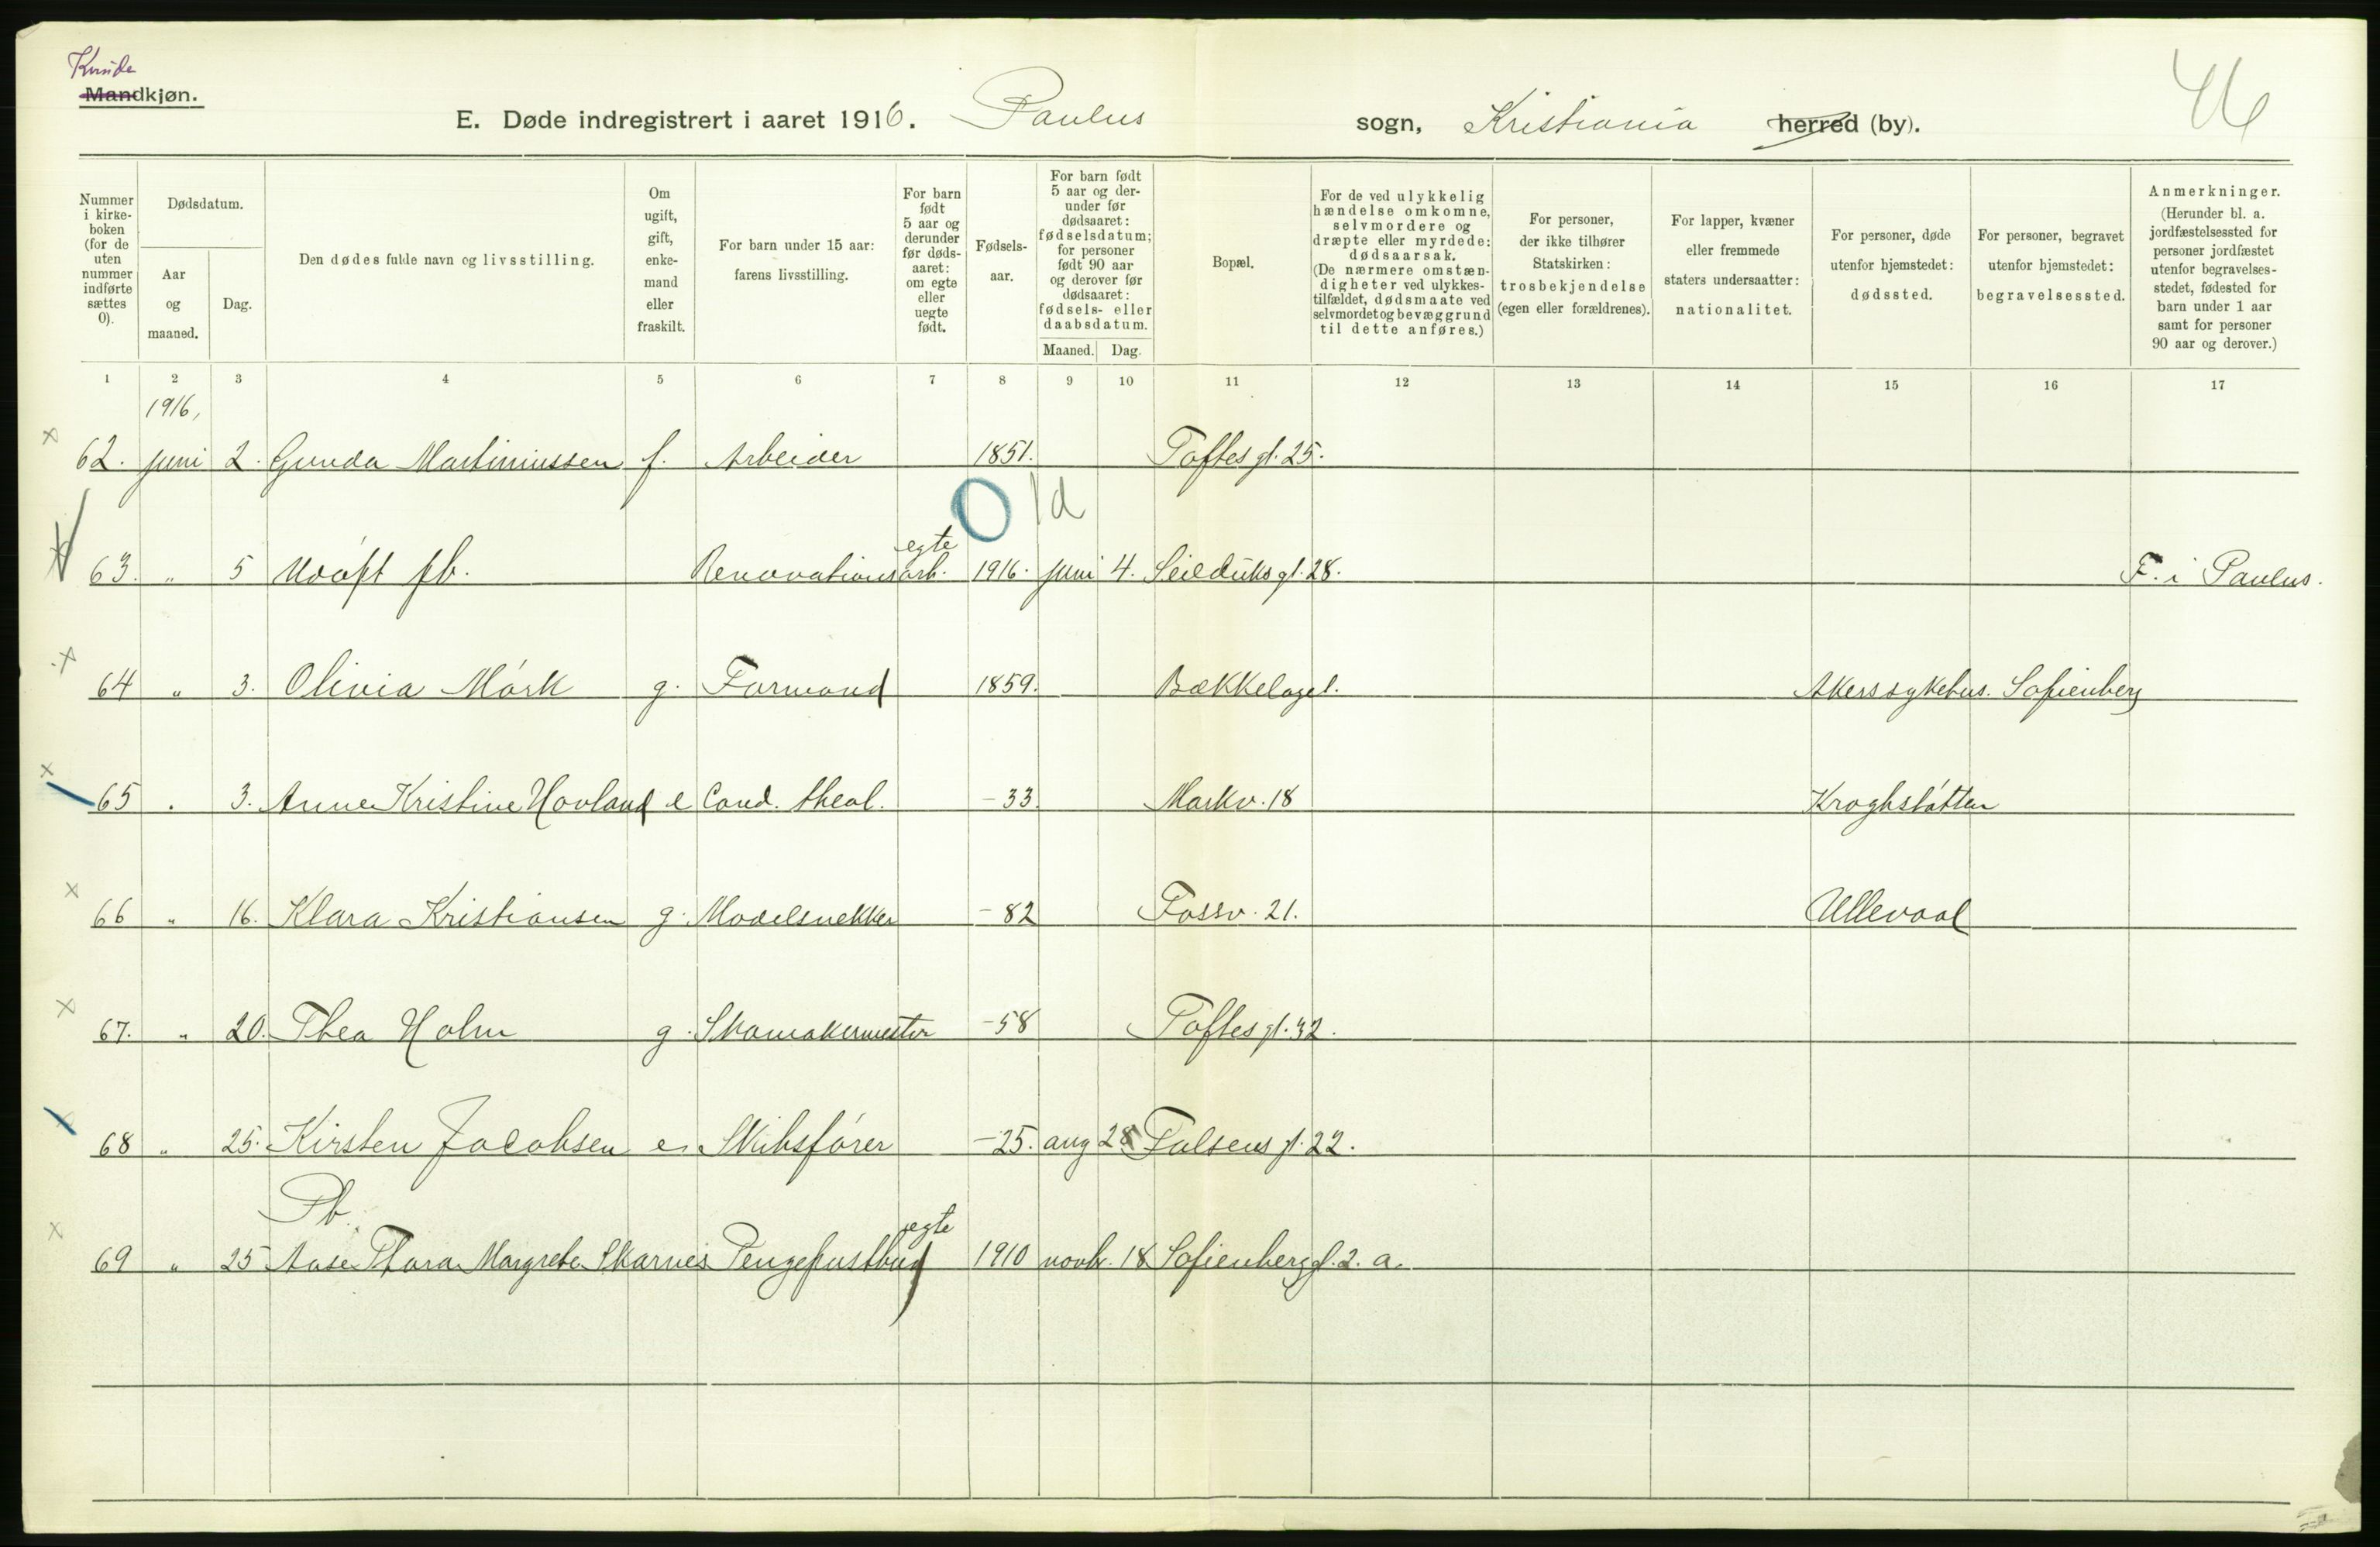 Kvinde
Mandkjøn.
E. Døde indregistrert i aaret 1916. Paulus sogn, Kristiania herred (by).
Nummer i kirkeboken (for de uten nummer indførte sættes 0).
Dødsdatum.
Aar og maaned.
Dag.
Den dødes fulde navn og livsstilling.
Om ugift, gift, enkemand eller fraskilt.
For barn under 15 aar: farens livsstilling.
For barn født 5 aar og derunder før dødsaaret: om egte eller uegte født.
Fødselsaar.
For barn født 5 aar og derunder før dødsaaret: fødselsdatum; for personer født 90 aar og derover før dødsaaret: fødsels- eller daabsdatum.
Maaned. Dag.
Bopæl.
For de ved ulykkelig hændelse omkomne, selvmordere og dræpte eller myrdede: dødsaarsak. (De nærmere omstændigheter ved ulykkestilfældet, dødsmaate ved selvmordet og bevæggrund til dette anføres.)
For personer, der ikke tilhører Statskirken: trosbekjendelse (egen eller forældrenes).
For lapper, kvæner eller fremmede staters undersaatter: nationalitet.
For personer, døde utenfor hjemstedet: dødssted.
For personer, begravet utenfor hjemstedet: begravelsessted.
Anmerkninger. (Herunder bl. a. jordfæstelsessted for personer jordfæstet utenfor begravelsesstedet, fødested for barn under 1 aar samt for personer 90 aar og derover.)
1 2 3 4 5 6 7 8 9 10 11 12 13 14 15 16 17
1916,
62. juni 2. Gunda Martiniussen f. Arbeider 1851. Toftes gt. 25.
0 1d
egte
63. " 5 Udøpt pb. Renovationsarb. 1916. juni 4. Seilduks gt. 28. F. i Paulus.
64 " 3. Olivia Mørk g. Formand 1859. Bækkelaget. Akers sykehus. Sofienberg
65 " 3. Anne Kristine Hovland e Cand. theol. -33. Markv. 18 Kroghstøtten
66 " 16. Klara Kristiansen g. Modelsnekker -82 Fossv. 21. Ullevaal
67. " 20. Thea Holm g. Skomakermester -58 Toftes gt. 32.
68 " 25. Kirsten Jacobsen e. Skibsfører -25. aug 28 Falsens gt. 22.
Pb.
egte
69 " 25 Aase Thora Margrete Skarnes Pengepostbud 1910 novbr. 18 Sofienberggt. 2. a.